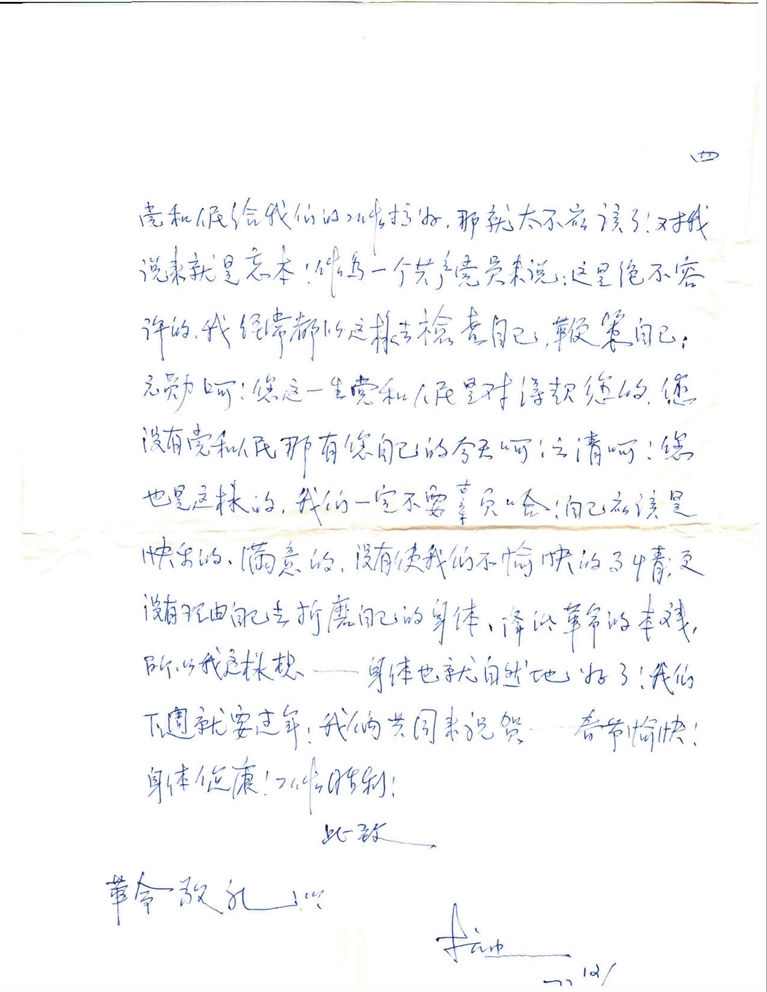 四
党和人民给我们的工作搞好,那就太不应该了!对我
说来就是忘本!作为一个共产党员来说:这是绝不容
许的,我经常都以这樣去檢查自己,鞭策自己;
元勋呵!您这一生党和人民是对得起您的,您
没有党和人民那有您自己的今天呵!立清呵!您
也是这樣的,我们一定不要辜负唅!自己应该是
快乐的、满意的,没有使我们不愉快的事情,更
没有理由自己去折磨自己的身体、降低革命的本钱,
所以我这樣想——身体也就自然地好了!我们
下週就要过年!我们共同来祝贺——春节愉快!
身体健康!工作胜利!
此致
革命敬礼!!!